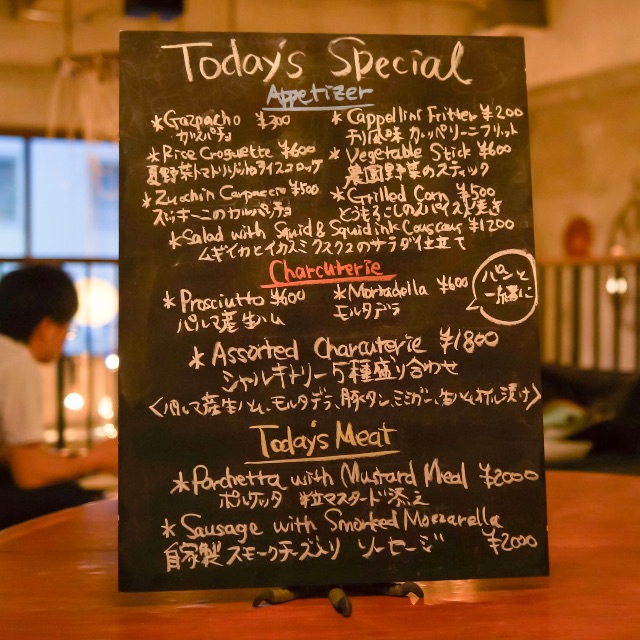 Today's Special
Appetizer
*Gazpacho ¥300
ガスパチョ
*Cappellini Fritter ¥200
カッペリーニフリット
*Rice Croguette ¥600
夏野菜トマトリゾットのライスコロッケ
*Vegetable Stick ¥600
農園野菜のスティック
*Zucchin Carpaccio ¥500
ズッキーニのカルパッチョ
*Grilled Corn ¥500
とうもろこしのスパイス焼き
*Salad with Squid & Squid ink Couscous ¥1200
ムギイカとイカスミクスクスのサラダ仕立て
Charcuterie
*Prosciutto ¥600
パルマ産生ハム
*Mortadella ¥600
モルタデラ
パンと
一緒に
*Assorted Charcuterie ¥1800
シャルキトリー5種盛り合わせ
<パルマ産生ハム、モルタデラ、豚タン、ミミガー、生ハムオイル漬け>
Today's Meat
*Porchetta with Mustard Meal ¥2000
ポルケッタ 粒マスタード添え
*Sausage with Smorked Mozzarella
自家製スモークチーズ入り ソーセージ ¥2000